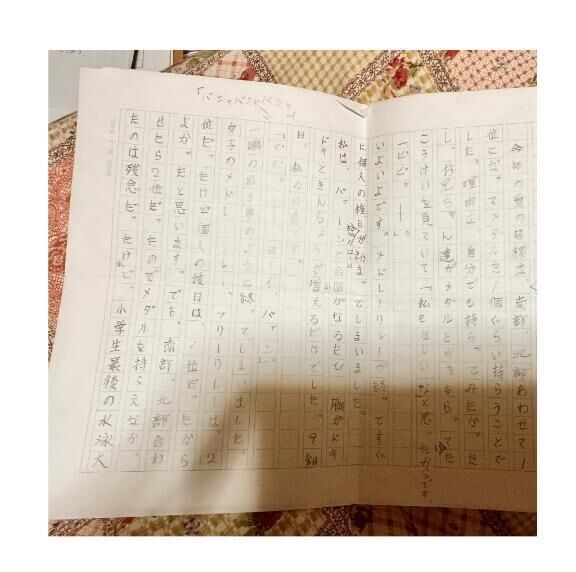 今年の夏の目標は、南部、北部あわせて1
位になってメダルを1個ぐらい持らうことで
した。理由は、自分でも持ってみたかった
し、お兄ちゃん達がメダルとかをもらってた
こうけいを見ていて「私もほしいな」と思ったからです。
「ピピッー。」
いよいよです。メドレーリレーが終ってすぐ
に個人の種目が始まってしまいました。
私は、バァーンと合図がなるたび、胸がドキ
ドキときんちょうが増えるだけでした。9組
目、私の
「ピピッ ヨーイ、バァン。」
「バシャバシャバシャ
一瞬の出き事のように終ってしまいました。
女子のメドレーリレー、フリーリレーは、2
位だったけど個人の種目は、1位だったから
よかったと思います。でも、南部、北部合わ
せたら2位だったのでメダルを持らえなかっ
たのは残念だったけれど、小学生最後の水泳大